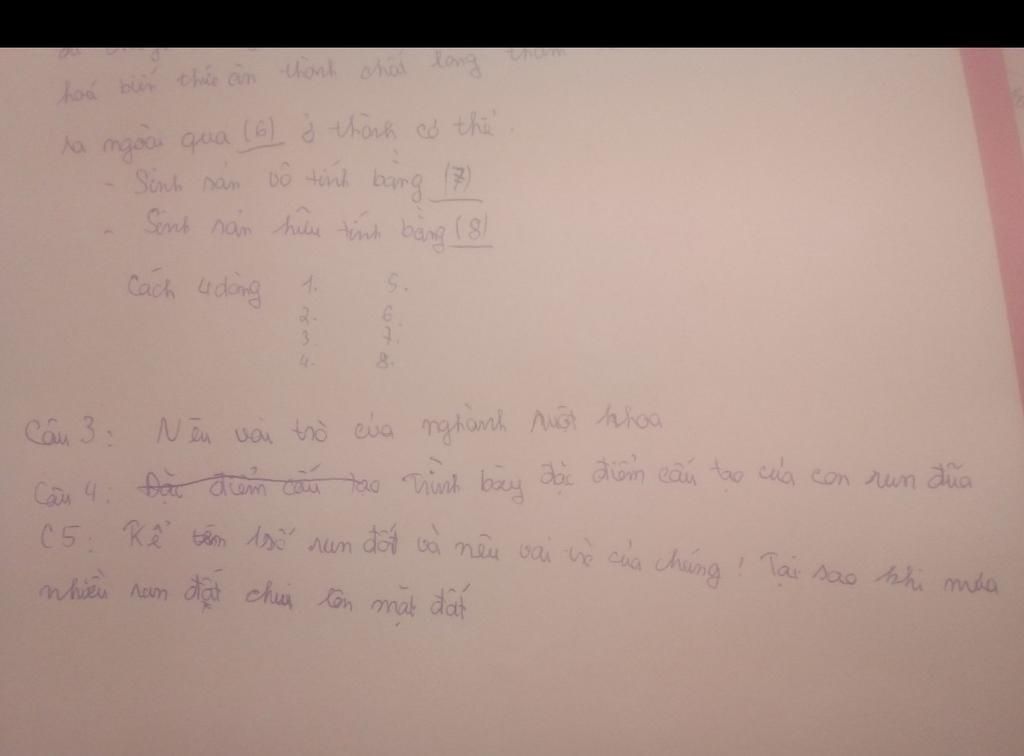 hoá biến thức ăn thành chất lỏng thấm
ra ngoài qua (6) ở thành cơ thể.
- Sinh sản vô tính bằng (7)
- Sinh sản hữu tính bằng (8)
Cách 4 dòng 1. 5.
2. 6.
3. 7.
4. 8.
Câu 3: Nêu vai trò của nghành ruột khoa
Câu 4: Đặc điểm cấu tạo Trình bày đặc điểm cấu tạo của con run đũa
C5: Kể tên 1 số run đốt và nêu vai trò của chúng! Tại sao khi mưa
nhiều run đất chui lên mặt đất